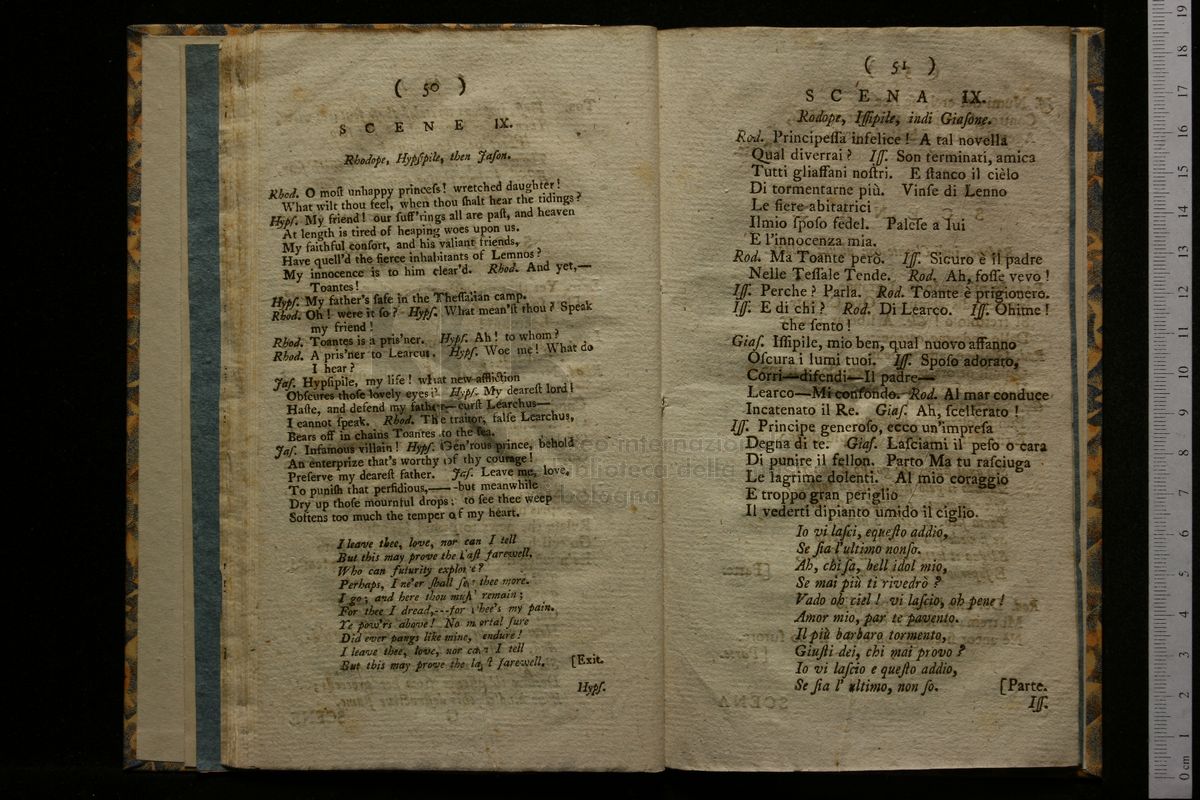 ( 50 )
SCENE IX.
Rhodope, Hypſipile, then Jaſon.
Rhod. O moſt unhappy princeſs! wretched daughter!
What wilt thou feel, when thou ſhalt hear the tidings?
Hypſ. My friend! our ſuff'rings all are paſt, and heaven
At length is tired of heaping woes upon us.
My faithful conſort, and his valiant friends,
Have quell'd the fierce inhabitants of Lemnos?
My innocence is to him clear'd. Rhod. And yet,—
Toantes!
Hypſ. My father's ſafe in the Theſſalian camp.
Rhod. Oh! were it ſo? Hypſ. What mean'ſt thou? Speak
my friend!
Rhod. Toantes is a pris'ner. Hypſ. Ah! to whom?
Rhod. A pris'ner to Learcus. Hypſ. Woe me! What do
I hear?
Jaſ. Hypſipile, my life! what new affliction
Obſcures thoſe lovely eyes? Hypſ. My deareſt lord!
Haſte, and defend my father—curſt Learchus—
I cannot ſpeak. Rhod. The traitor, falſe Learchus,
Bears off in chains Toantes to the ſea.
Jaſ. Infamous villain! Hypſ. Gen'rous prince, behold
An enterprize that's worthy of thy courage!
Preſerve my deareſt father. Jaſ. Leave me, love,
To puniſh that perfidious,——-but meanwhile
Dry up thoſe mournful drops; to ſee thee weep
Softens too much the temper of my heart.
I leave thee, love, nor can I tell
But this may prove the laſt farewell.
Who can futurity explore?
Perhaps, I ne'er ſhall ſee thee more.
I go; and here thou muſt remain;
For thee I dread,---for thee's my pain.
Ye pow'rs above! No mortal ſure
Did ever pangs like mine, endure!
I leave thee, love, nor can I tell
But this may prove the laſt farewell. [Exit.
Hypſ.
( 51 )
SCENA IX.
Rodope, Iſſipile, indi Giaſone.
Rod. Principeſſa infelice! A tal novella
Qual diverrai? Iſſ. Son terminati, amica
Tutti gliaffani noſtri. E ſtanco il cièlo
Di tormentarne più. Vinſe di Lenno
Le fiere abitatrici
Ilmio ſpoſo fedel. Paleſe a lui
E l'innocenza mia.
Rod. Ma Toante però. Iſſ. Sicuro è il padre
Nelle Teſſale Tende. Rod. Ah, foſſe vevo!
Iſſ. Perche? Parla. Rod. Toante è prigionero.
Iſſ. E di chi? Rod. Di Learco. Iſſ. Ohime!
che ſento!
Giaſ. Iſſipile, mio ben, qual nuovo affanno
Oſcura i lumi tuoi. Iſſ. Spoſo adorato,
Corri—difendi—Il padre—
Learco—Mi confondo. Rod. Al mar conduce
Incatenato il Re. Giaſ. Ah, ſcellerato!
Iſſ. Principe generoſo, ecco un'impreſa
Degna di te. Giaſ. Laſciami il peſo o cara
Di punire il fellon. Parto Ma tu raſciuga
Le lagrime dolenti. Al mio coraggio
E troppo gran periglio
Il vederti dipianto umido il ciglio.
Io vi laſci, equeſto addio,
Se ſia l'ultimo nonſo.
Ah, chi ſa, bell idol mio,
Se mai più ti rivedrò?
Vado oh ciel! vi laſcio, oh pene!
Amor mio, par te pavento.
Il più barbaro tormento,
Giuſti dei, chi mai provo?
Io vi laſcio e queſto addio,
Se ſia l' ultimo, non ſo. [Parte.
Iſſ.